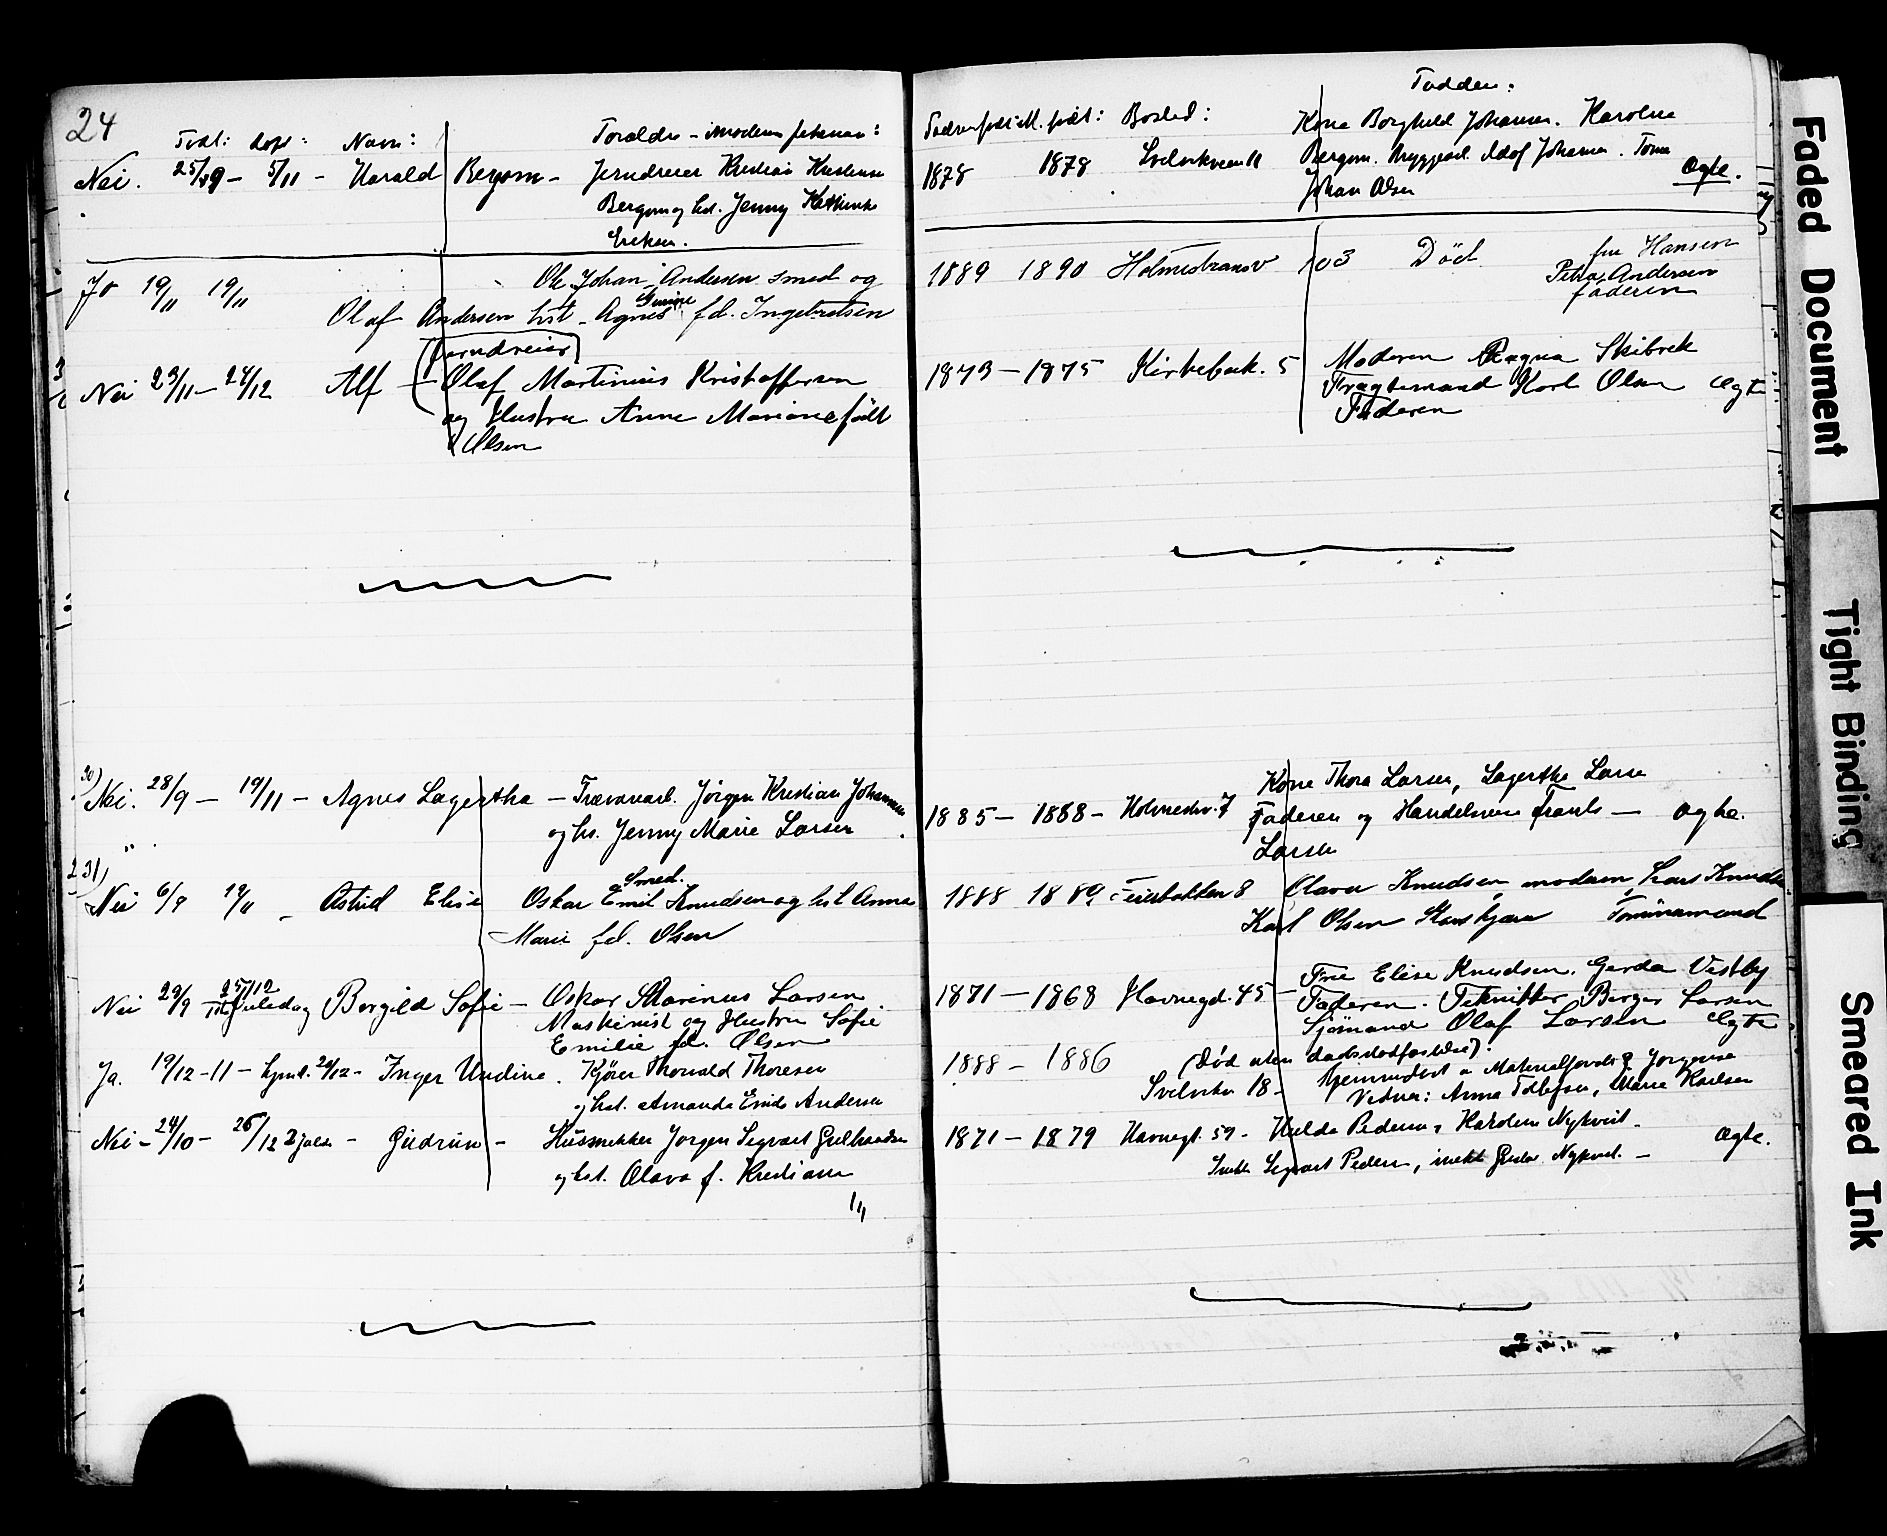 24
Født: døpt: Navn: Forældre - moderens pikenavn:
Nei. 25/9 - 5/11 - Harald Bergom - Jerndreier Kristian Kristensen
Bergom og hst. Jenny Kathinka
Eriksen.
Ja 19/11 19/11 Ole Johan Andersen smed og
Olaf Andersen hst - Agnes Gunine fd. Ingebretsen
(Jerndreier)
Nei 23/11 - 24/12 Alf - Olaf Martinius Kristoffersen
og Hustru Anne Mariane født
Olsen
30)
Nei. 28/9 - 19/11 - Agnes Lagertha - Trævarearb. Jørgen Kristian Johannesen
og hs. Jenny Marie Larsen
31)
Nei 6/9 19/11 - Astrid Elise Oskar Emil Knudsen og hst Anna
Smed.
Marie fd. Olsen
Nei 29/9 25/12 Juledag Borgild Sofie - Oskar Marinus Larsen
Maskinist og Hustru Sofie
Emilie fd. Olsen
Ja. 19/12 - 11 - hjmd. 20/12 - Inger Undine. Kjører Thorvald Thoresen
og hst. Amanda Andersen
Nei - 24/10 - 26/12 2 juled - Gudrun - Jørgen Segvart Gulbrandsen
og hst. Olava f. Kristiansen
Faderen født: M. født: Bosted: Fadder:
Kone Borghild Johansen. Karoline
1878 1878 Svelvikveien 11 Bergom. Bryggearb. Adolf Johansen. Tome
Johan Olsen Ægte.
1889 1890 Holmestrandsv 103 Död fru Hansen
Petra Andersen
faderen
1873 - 1875 Kirkebak. 5 Moderen Ragna Skibrek
Fragtemand Karl Olsen Ægte
Faderen
Kone Thora Larsen, Lagertha Larsen
1885 - 1888 - Holmestrv. 7 Faderen og Handelsmann Frants - Ægte.
Larsen
1888 1889 Feierbakken 8 Olava Knudsen, moderen, Lars Knudsen
Karl Olsen Tømmermand
Fru Elise Knudsen. Gerda Vestby
1871 - 1868 Havnegd. 45 - Faderen. Tekniker Birger Larsen
Sjömand Olaf Larsen Ægte
1888 - 1886 (Død uten daabsstadfæstelse).
Svelvikv 18 - Hjemmedøbt a Materialforvalt Jørgensen
Vidner: Anna Tollefsen, Marie Karlsen
1871 - 1879 Havnegt. 59 - Hulda Pedersen, Karoline Nykvist - Ægte.
Snekk Segvart Pedersen, Nykvist. -
Faded Document
Tight Binding
Smeared Ink